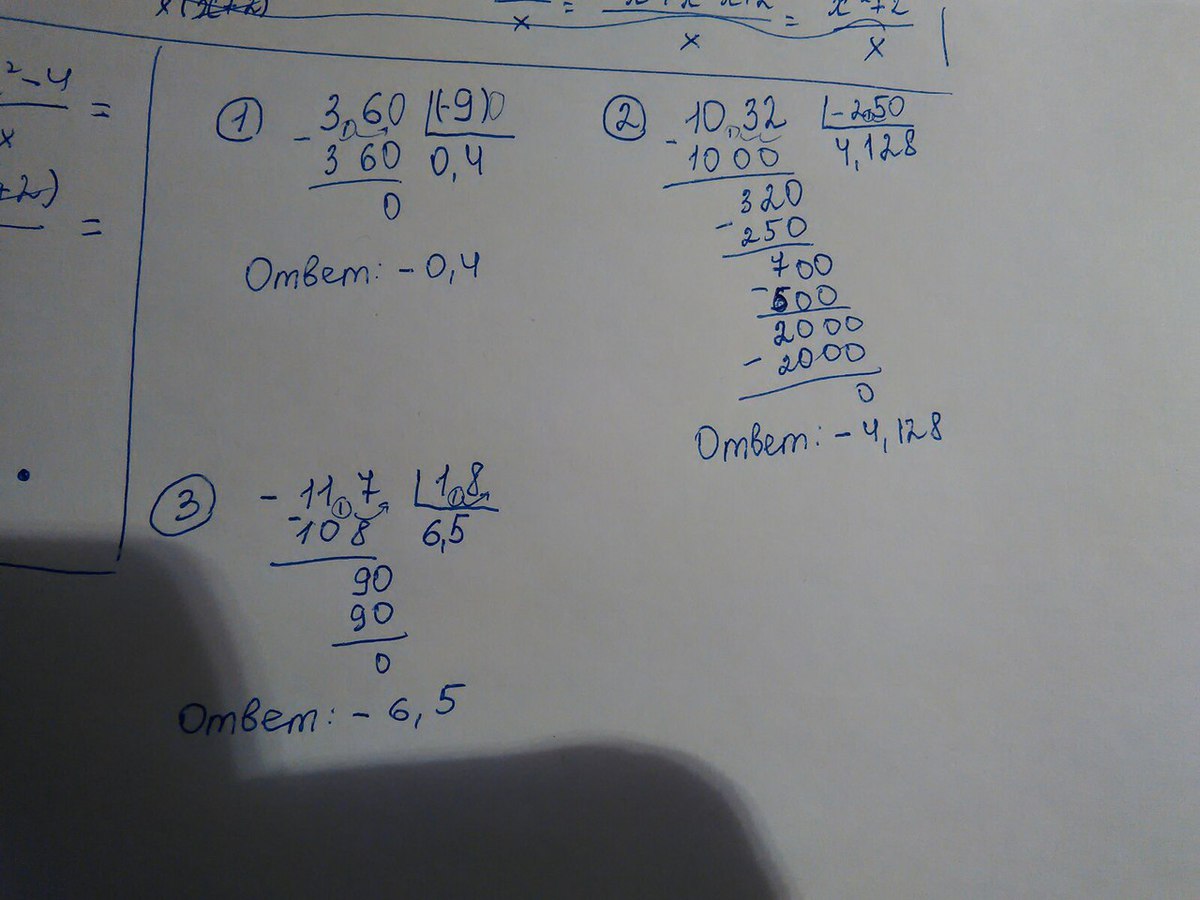 x
x
=
x
=
x²+2
x
²-4
x
=
+2)
=
① 3,60 |(-9)0
- 360 0,4
0
Ответ: -0,4
② 10,32 |-2,50
- 1000 4,128
320
- 250
700
- 500
2000
- 2000
0
Ответ: -4,128
③ - 11,7 |1,8
- 108 6,5
90
90
0
Ответ: -6,5